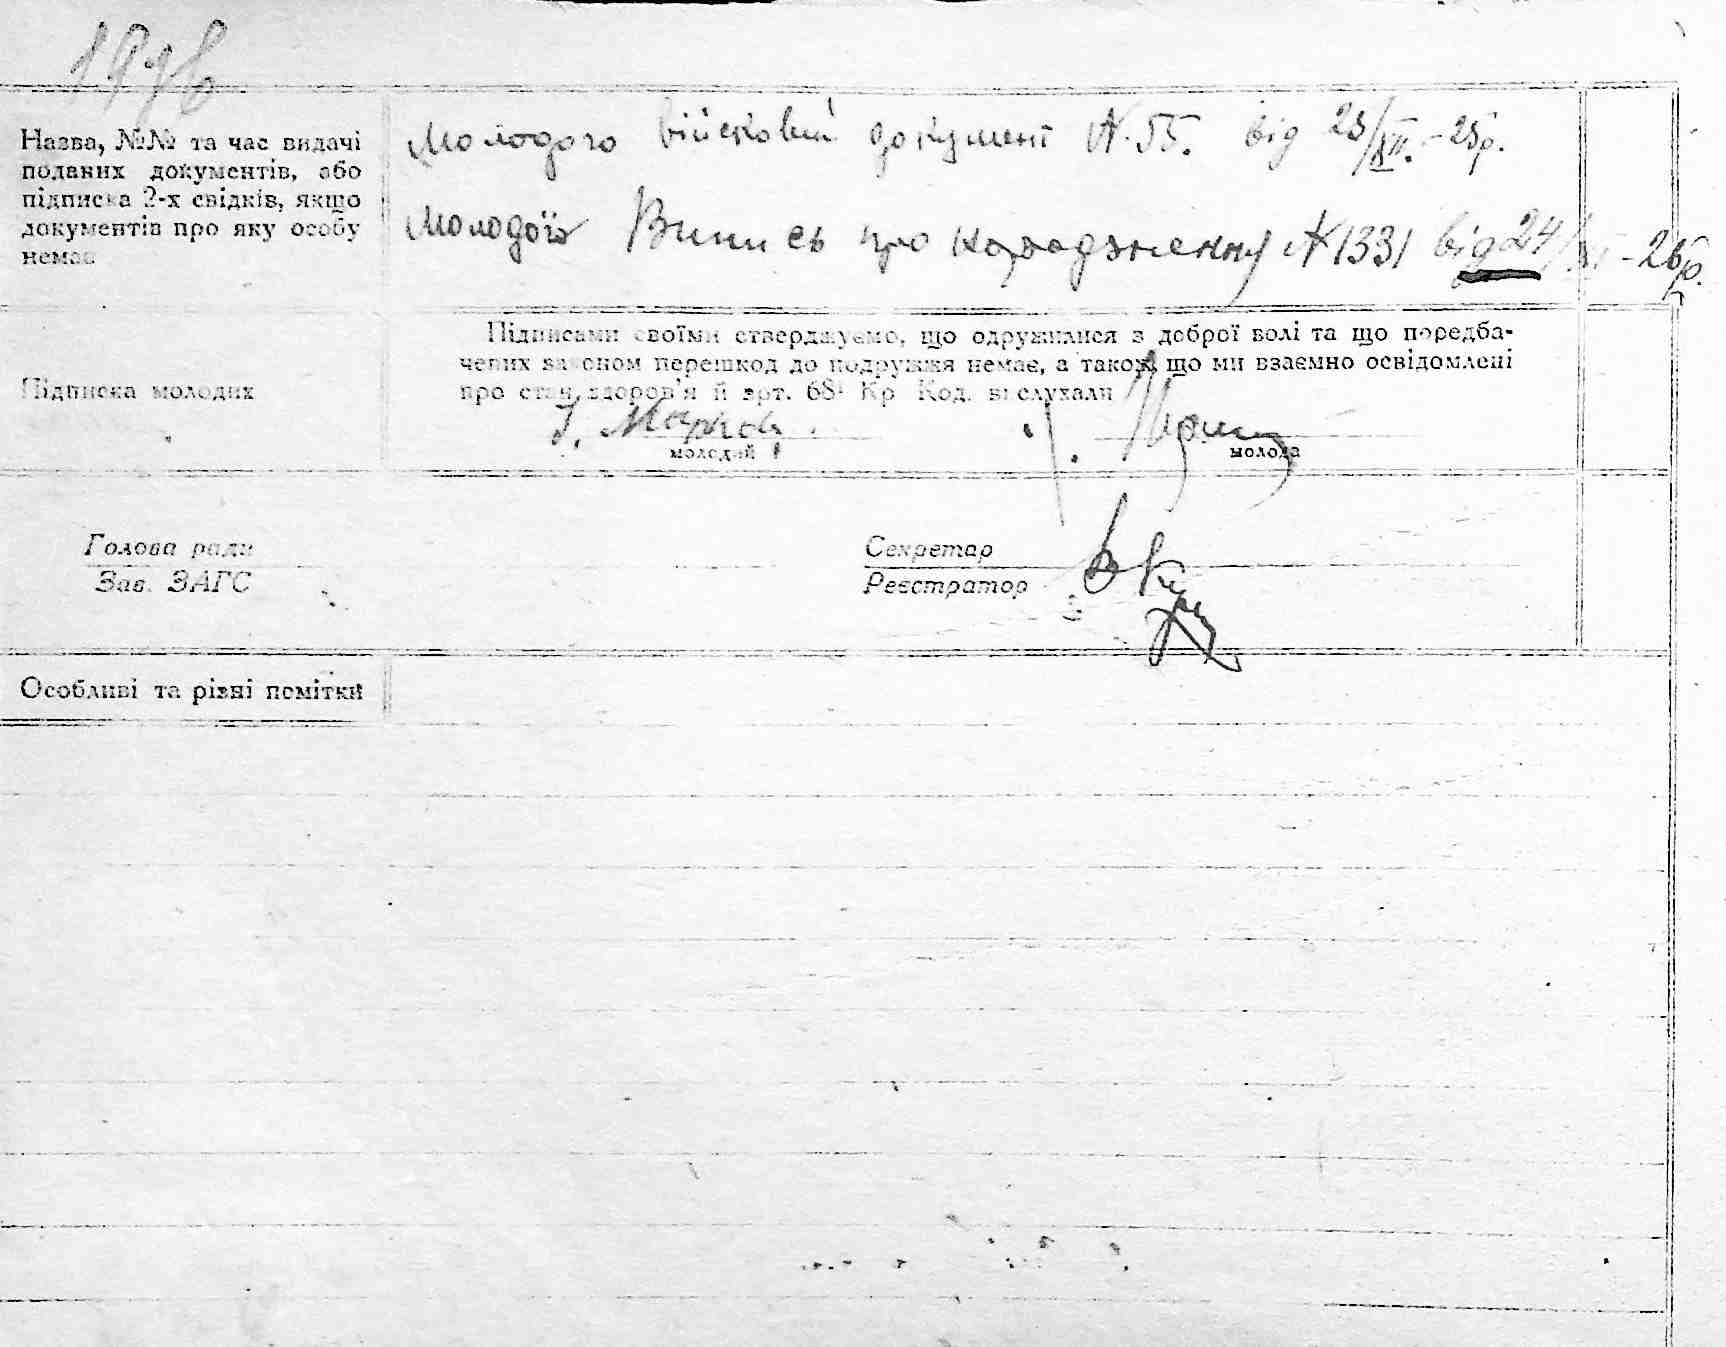 1926
Назва, №№ та час видачі
поданих документів, або
підписка 2-х свідків, якщо
документів про яку особу
немає
Молодого військовий документ №. 55. від 23/XII. - 25р.
Молодої Випись про народження № 1331 від 24/XI - 26р.
Підписами своїми стверджуємо, що одружилися з доброї волі та що передба-
чених законом перешкод до подружжя немає, а також що ми взаємно освідомлені
про стан здоров'я й арт. 68¹ Кр Код. вислухали
Підписка молодих
молодий
молода
Голова ради
Зав. ЗАГС
Секретар
Реєстратор
Особливі та різні помітки